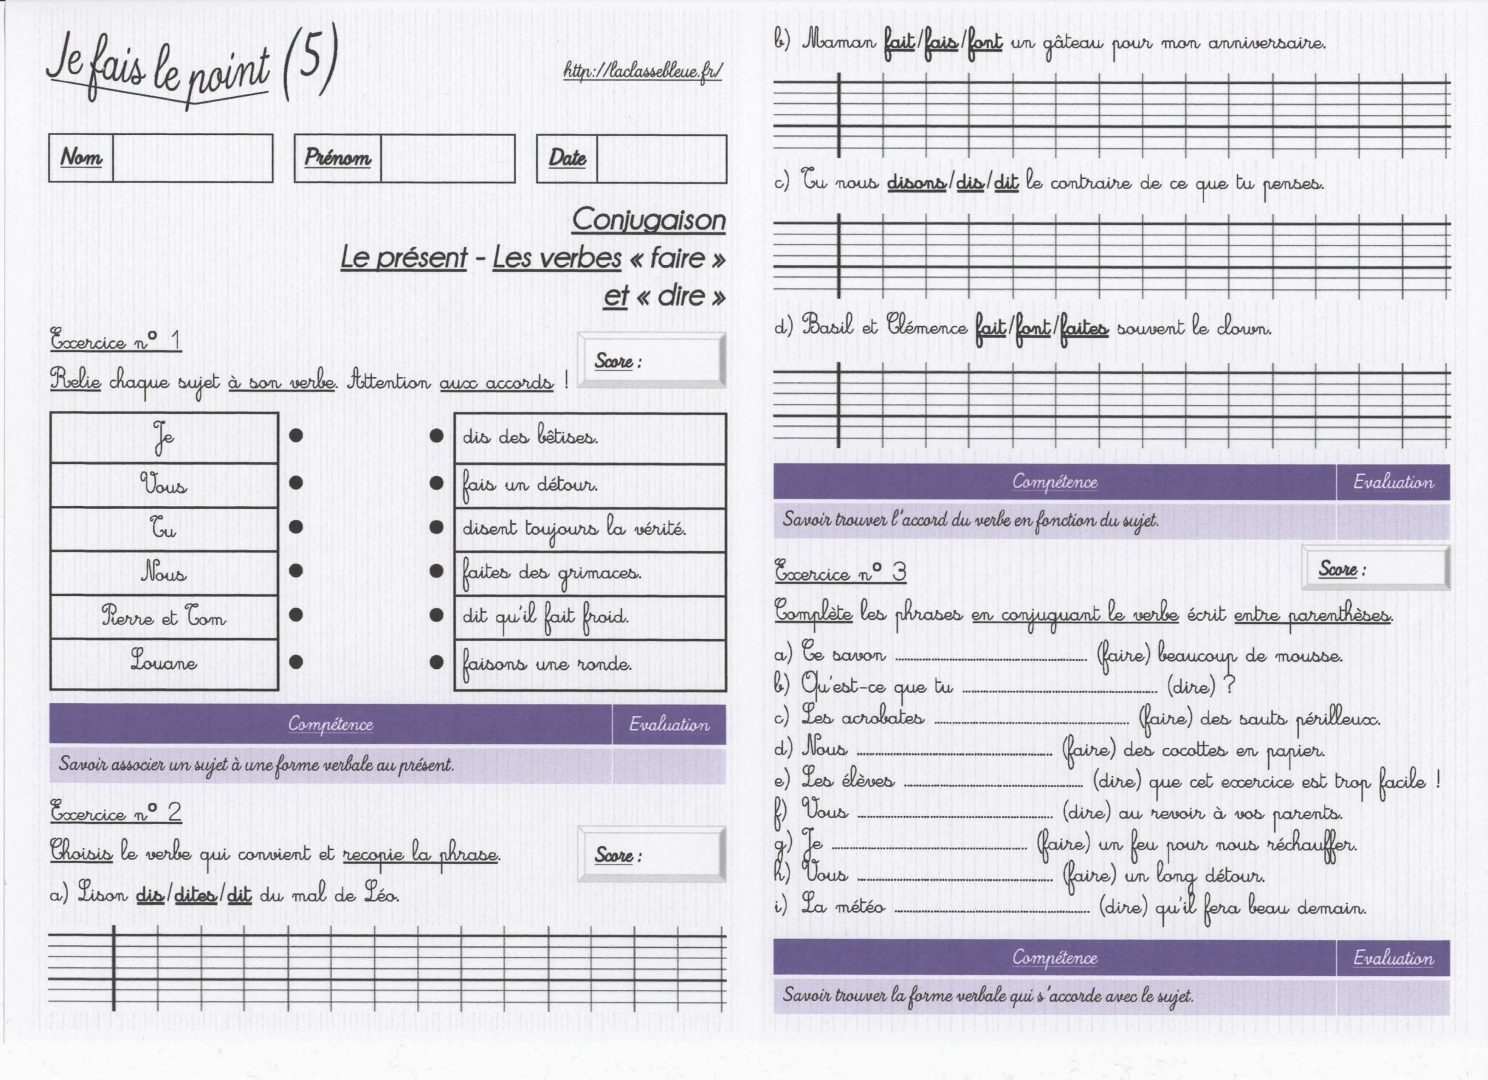 Je fais le point (5)
http://laclassebleue.fr/
Nom
Prénom
Date
Conjugaison
Le présent - Les verbes « faire »
et « dire »
Exercice n° 1
Score :
Relie chaque sujet à son verbe. Attention aux accords !
Je
dis des bêtises.
Vous
fais un détour.
Tu
disent toujours la vérité.
Nous
faites des grimaces.
Pierre et Tom
dit qu'il fait froid.
Louane
faisons une ronde.
Compétence
Evaluation
Savoir associer un sujet à une forme verbale au présent.
Exercice n° 2
Choisis le verbe qui convient et recopie la phrase.
Score :
a) Lison dis/dites/dit du mal de Léo.
b) Maman fait/fais/font un gâteau pour mon anniversaire.
c) Tu nous disons/dis/dit le contraire de ce que tu penses.
d) Basil et Clémence fait/font/faites souvent le clown.
Compétence
Evaluation
Savoir trouver l'accord du verbe en fonction du sujet.
Exercice n° 3
Score :
Complète les phrases en conjuguant le verbe écrit entre parenthèses.
a) Ce savon ........................ (faire) beaucoup de mousse.
b) Qu'est-ce que tu ........................ (dire) ?
c) Les acrobates ........................ (faire) des sauts périlleux.
d) Nous ........................ (faire) des cocottes en papier.
e) Les élèves ........................ (dire) que cet exercice est trop facile !
f) Vous ........................ (dire) au revoir à vos parents.
g) Je ........................ (faire) un feu pour nous réchauffer.
h) Vous ........................ (faire) un long détour.
i) La météo ........................ (dire) qu'il fera beau demain.
Compétence
Evaluation
Savoir trouver la forme verbale qui s'accorde avec le sujet.